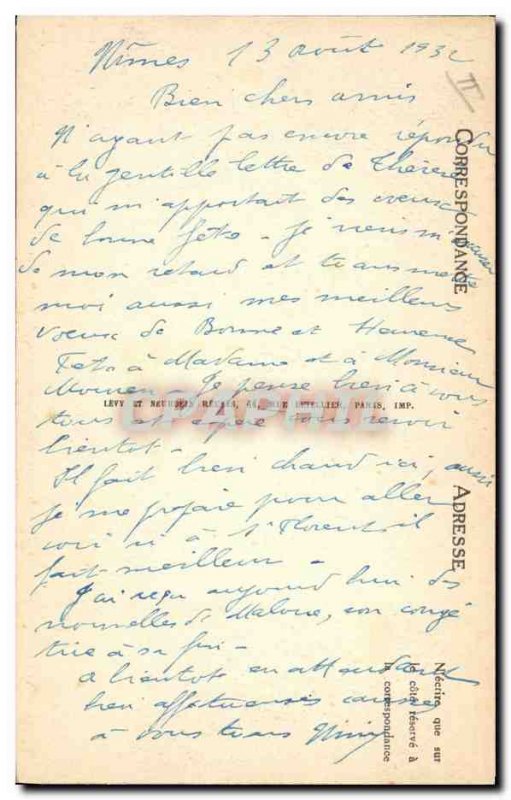 Nîmes 13 août 1932
II
Bien chers amis
N'ayant pas encore répondu
à la gentille lettre de Thérèse
qui m'apportait des voeux
de bonne fête - Je viens m'excuser
de mon retard et transmets
moi aussi mes meilleurs
voeux de Bonne et Heureuse
Fête à Madame et à Monsieur
Je pense bien à vous
tous et espère vous revoir
bientôt -
Il fait bien chaud ici, aussi
je me prépare pour aller
voir si à St Florent il
fait meilleur -
J'ai reçu aujourd'hui des
nouvelles de son congé
tire à sa fin -
A bientôt en attendant
bien affectueuses caresses
à vous tous
CORRESPONDANCE
ADRESSE
LEVY ET NEURDEIN RÉUNIS, 44, RUE LETELLIER, PARIS, IMP.
N'écrire que sur
le côté réservé à
la correspondance
CPAPHIL